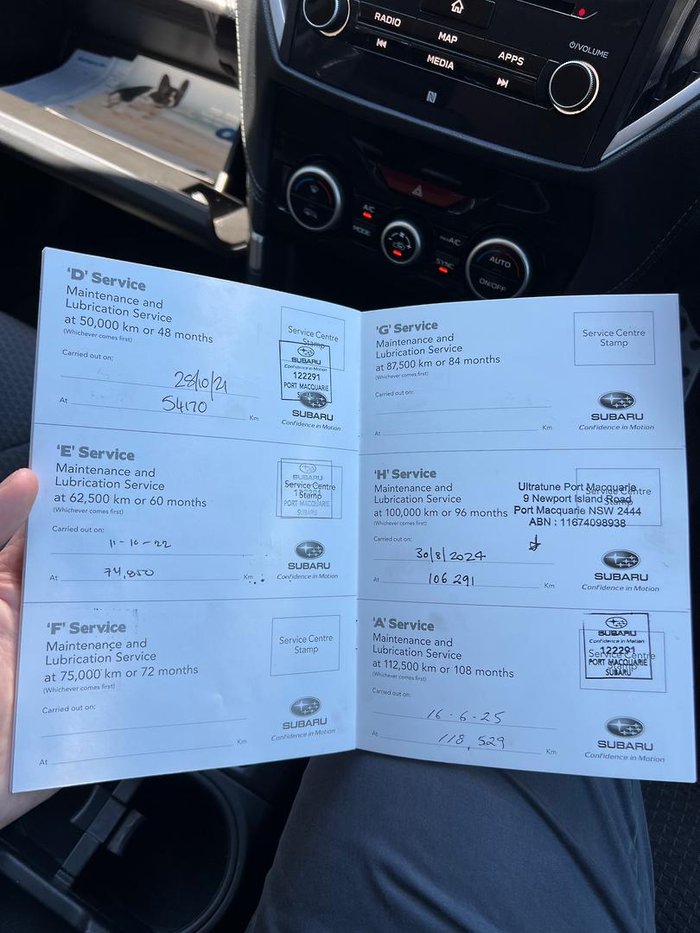 RADIO
MAP
APPS
MEDIA
VOLUME
A/C
MODE
SYNC
AUTO
ON/OFF
'D' Service
Maintenance and
Lubrication Service
at 50,000 km or 48 months
(Whichever comes first)
Carried out on:
28/10/21
At 54170 Km
Service Centre
Stamp
SUBARU
Confidence in Motion
122291
PORT MACQUARIE
SUBARU
SUBARU
Confidence in Motion
'E' Service
Maintenance and
Lubrication Service
at 62,500 km or 60 months
(Whichever comes first)
Carried out on:
11-10-22
At 74,850 Km
Service Centre
Stamp
SUBARU
PORT MACQUARIE
SUBARU
SUBARU
Confidence in Motion
'F' Service
Maintenance and
Lubrication Service
at 75,000 km or 72 months
(Whichever comes first)
Carried out on:
At Km
Service Centre
Stamp
SUBARU
Confidence in Motion
'G' Service
Maintenance and
Lubrication Service
at 87,500 km or 84 months
(Whichever comes first)
Carried out on:
At Km
Service Centre
Stamp
SUBARU
Confidence in Motion
'H' Service
Maintenance and
Lubrication Service
at 100,000 km or 96 months
(Whichever comes first)
Carried out on:
30/8/2024
At 106 291 Km
Service Centre
Ultratune Port Macquarie
9 Newport Island Road
Port Macquarie NSW 2444
ABN : 11674098938
SUBARU
Confidence in Motion
'A' Service
Maintenance and
Lubrication Service
at 112,500 km or 108 months
(Whichever comes first)
Carried out on:
16-6-25
At 118,529 Km
Service Centre
Stamp
SUBARU
Confidence in Motion
122291
PORT MACQUARIE
SUBARU
SUBARU
Confidence in Motion